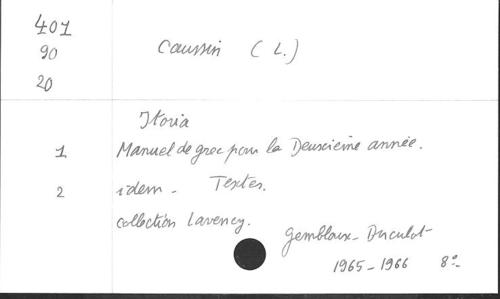 401
90 Caussin (L.)
20
Itoria
1 Manuel de grec pour la Deuxième année.
2 idem - Textes.
Collection Lavency.
Gembloux - Duculot
1965 - 1966 8°-